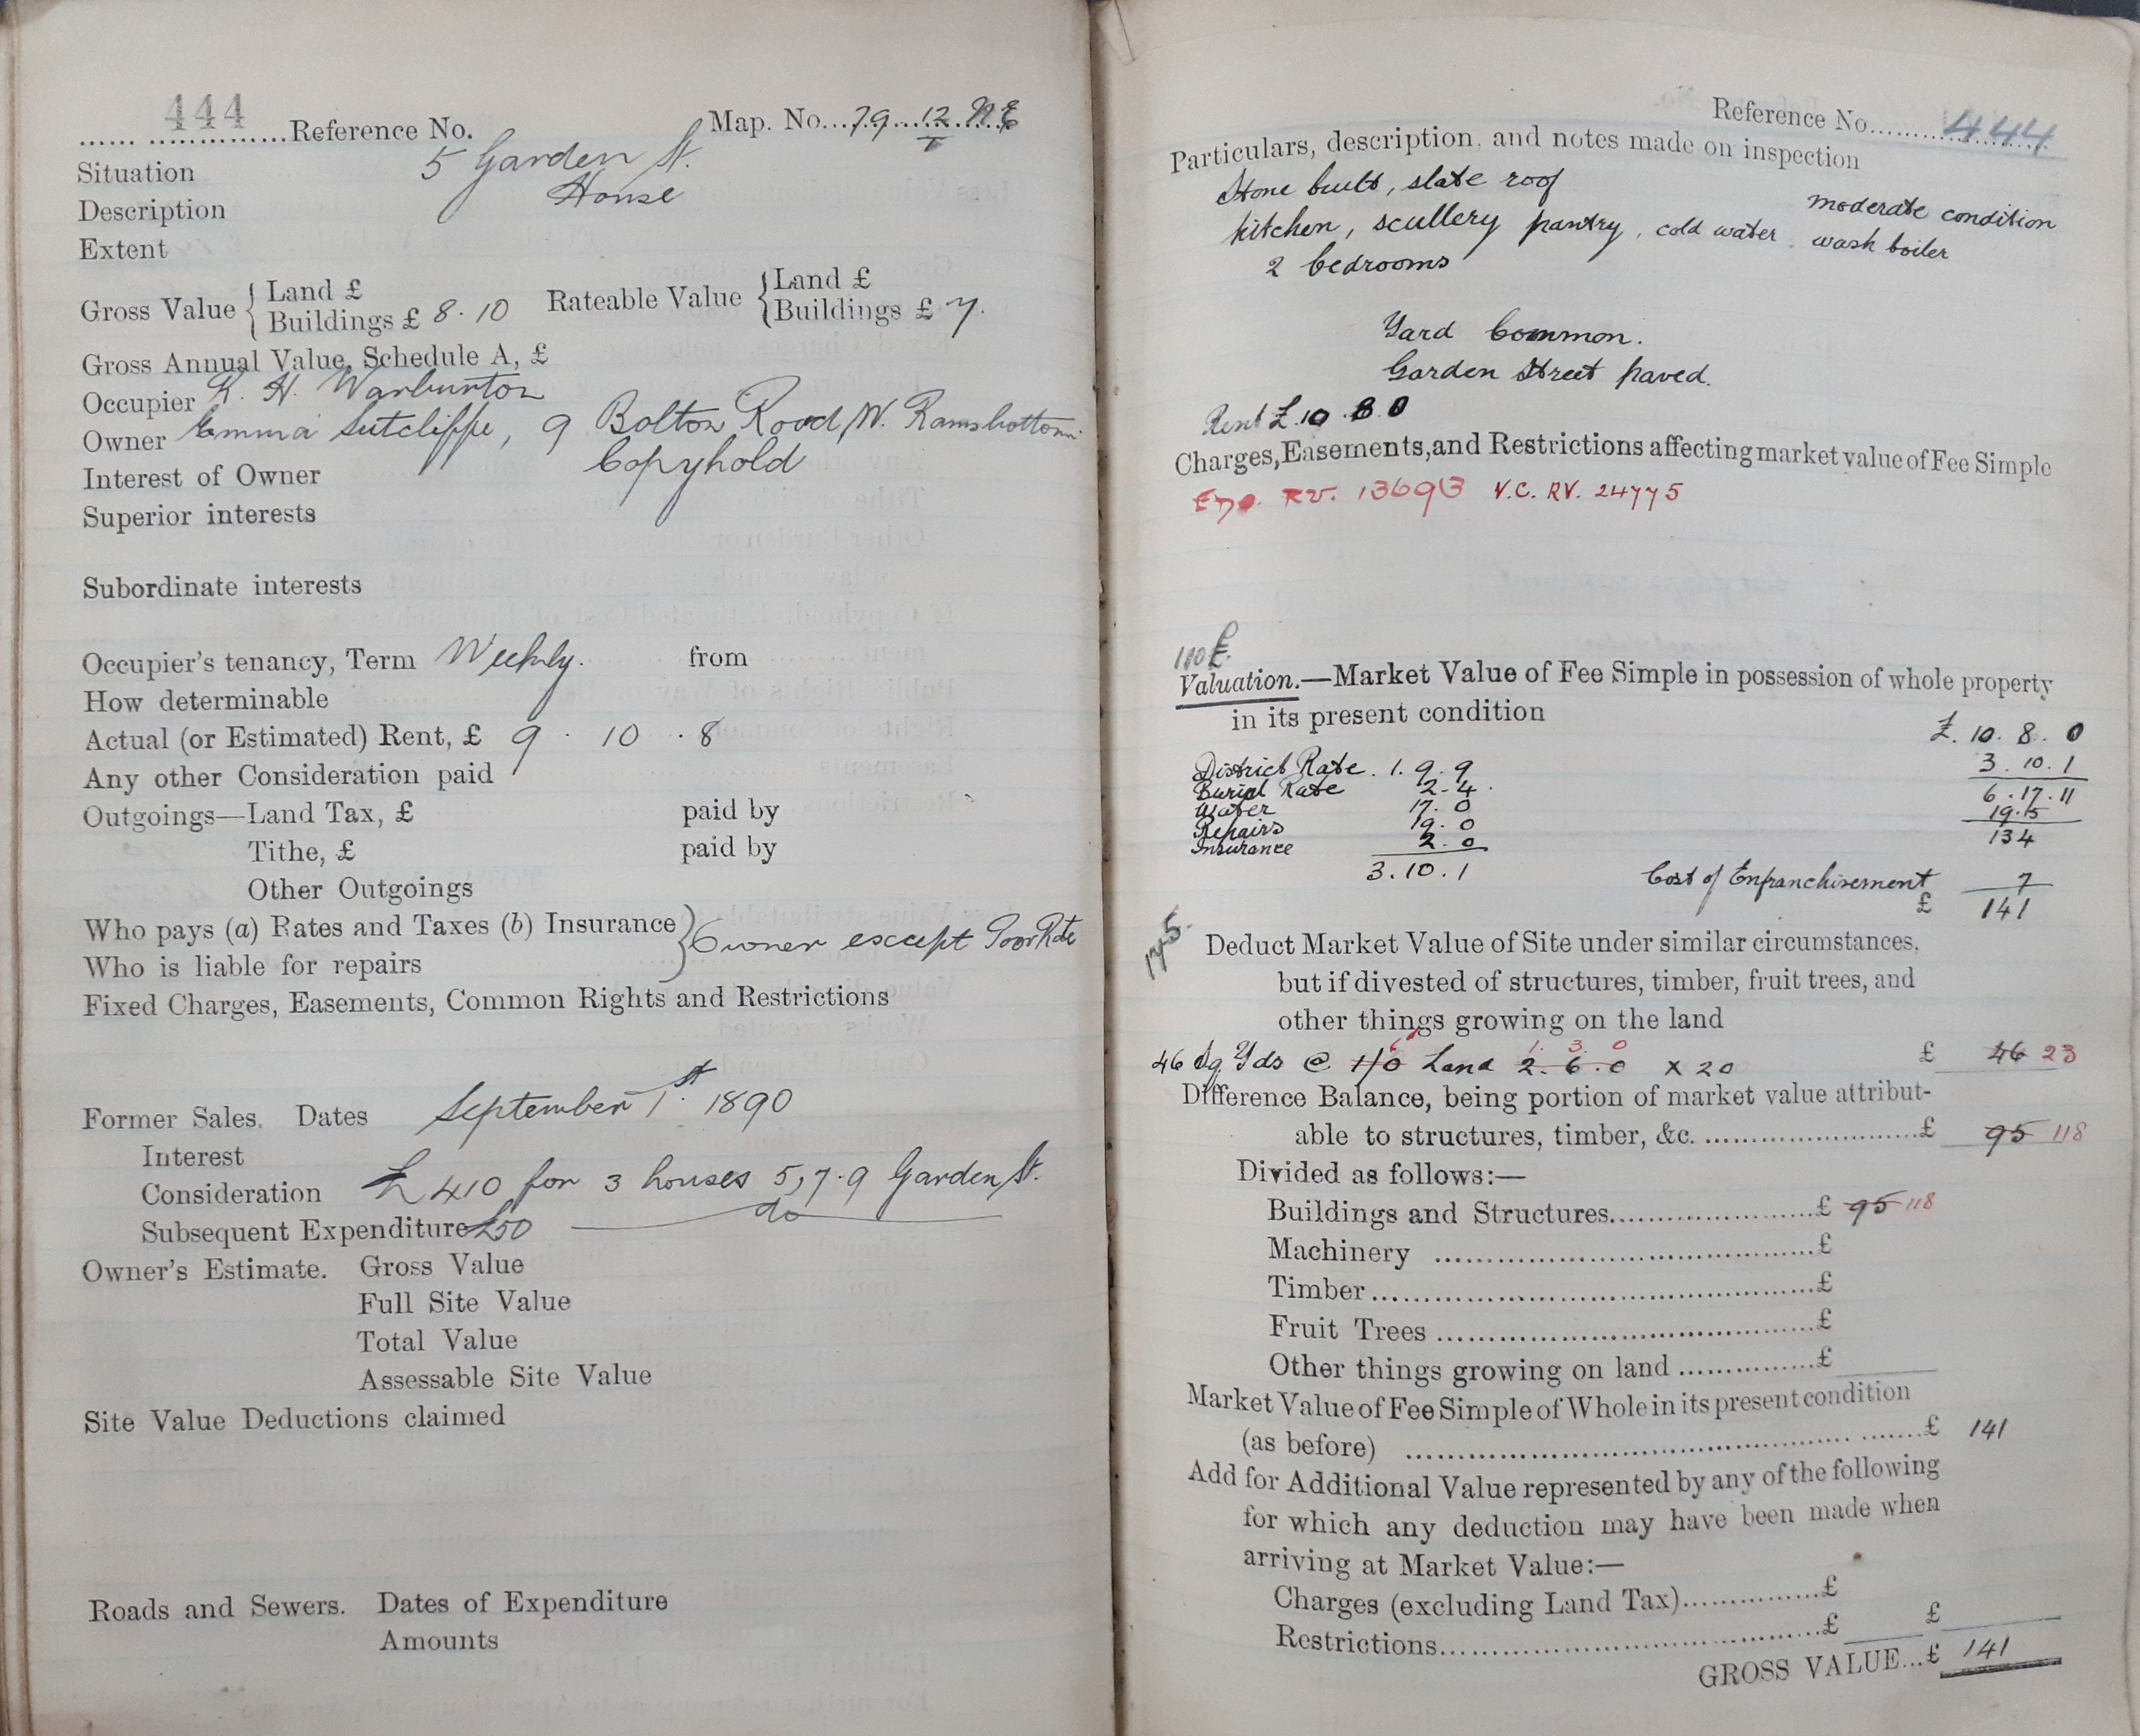 444 Reference No. Map. No. 79. 12. N.E
Situation 5 Garden St.
Description House
Extent
Gross Value { Land £ Rateable Value { Land £
Buildings £ 8. 10 Buildings £ 7.
Gross Annual Value, Schedule A, £
Occupier H. Warburton
Owner Emma Sutcliffe, 9 Bolton Road W. Ramsbottom
Interest of Owner Copyhold
Superior interests
Subordinate interests
Occupier's tenancy, Term Weekly. from
How determinable
Actual (or Estimated) Rent, £ 9 . 10 . 8
Any other Consideration paid
Outgoings—Land Tax, £ paid by
Tithe, £ paid by
Other Outgoings
Who pays (a) Rates and Taxes (b) Insurance } Owner except Poor Rate
Who is liable for repairs
Fixed Charges, Easements, Common Rights and Restrictions
Former Sales. Dates September 1st. 1890
Interest
Consideration £410 for 3 houses 5, 7. 9 Garden St.
Subsequent Expenditure £50 do
Owner's Estimate. Gross Value
Full Site Value
Total Value
Assessable Site Value
Site Value Deductions claimed
Roads and Sewers. Dates of Expenditure
Amounts
Reference No. 444
Particulars, description, and notes made on inspection
Stone built, slate roof moderate condition
kitchen, scullery pantry, cold water. wash boiler
2 bedrooms
Yard Common.
Garden Street paved.
Rent £.10 . 8. 0
Charges, Easements, and Restrictions affecting market value of Fee Simple
RV. 13693 V.C. RV. 24775
110£
Valuation.—Market Value of Fee Simple in possession of whole property
in its present condition
£. 10. 8. 0
District Rate. 1. 9. 9 3. 10. 1
Burial Rate 2. 4. 6. 17. 11
Water 17. 0 19.5
Repairs 19. 0 134
Insurance 2. 0
3. 10. 1 Cost of Enfranchisement 7
£ 141
175.
Deduct Market Value of Site under similar circumstances.
but if divested of structures, timber, fruit trees, and
other things growing on the land
46 Sq Yds @ 1/0 6 Land 2. 6. 0 1. 3. 0 x 20 £ 46 23
Difference Balance, being portion of market value attribut-
able to structures, timber, &c. £ 95 118
Divided as follows:—
Buildings and Structures £ 95 118
Machinery £
Timber £
Fruit Trees £
Other things growing on land £
Market Value of Fee Simple of Whole in its present condition
(as before) £ 141
Add for Additional Value represented by any of the following
for which any deduction may have been made when
arriving at Market Value:—
Charges (excluding Land Tax) £
Restrictions £ £
GROSS VALUE...£ 141